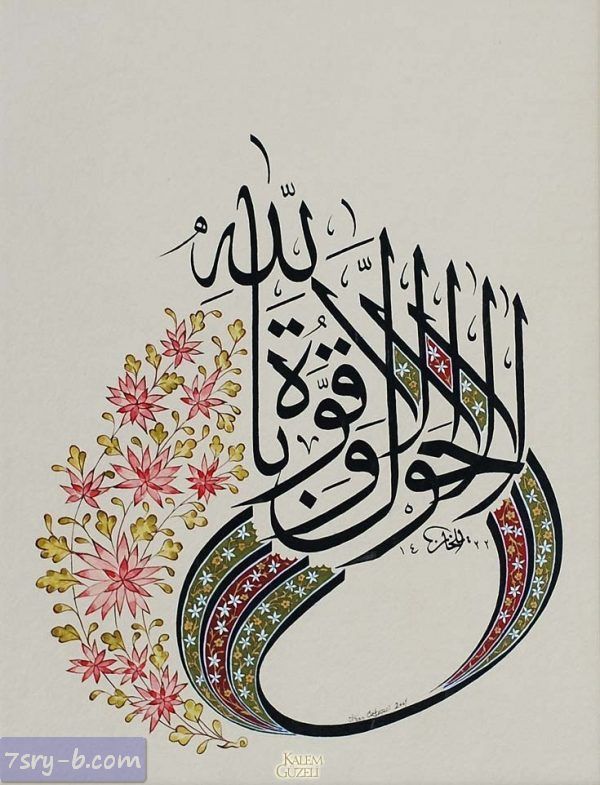 لا حول ولا قوة إلا بالله
١٤٢٢
KALEM GÜZELİ
7sry-b.com